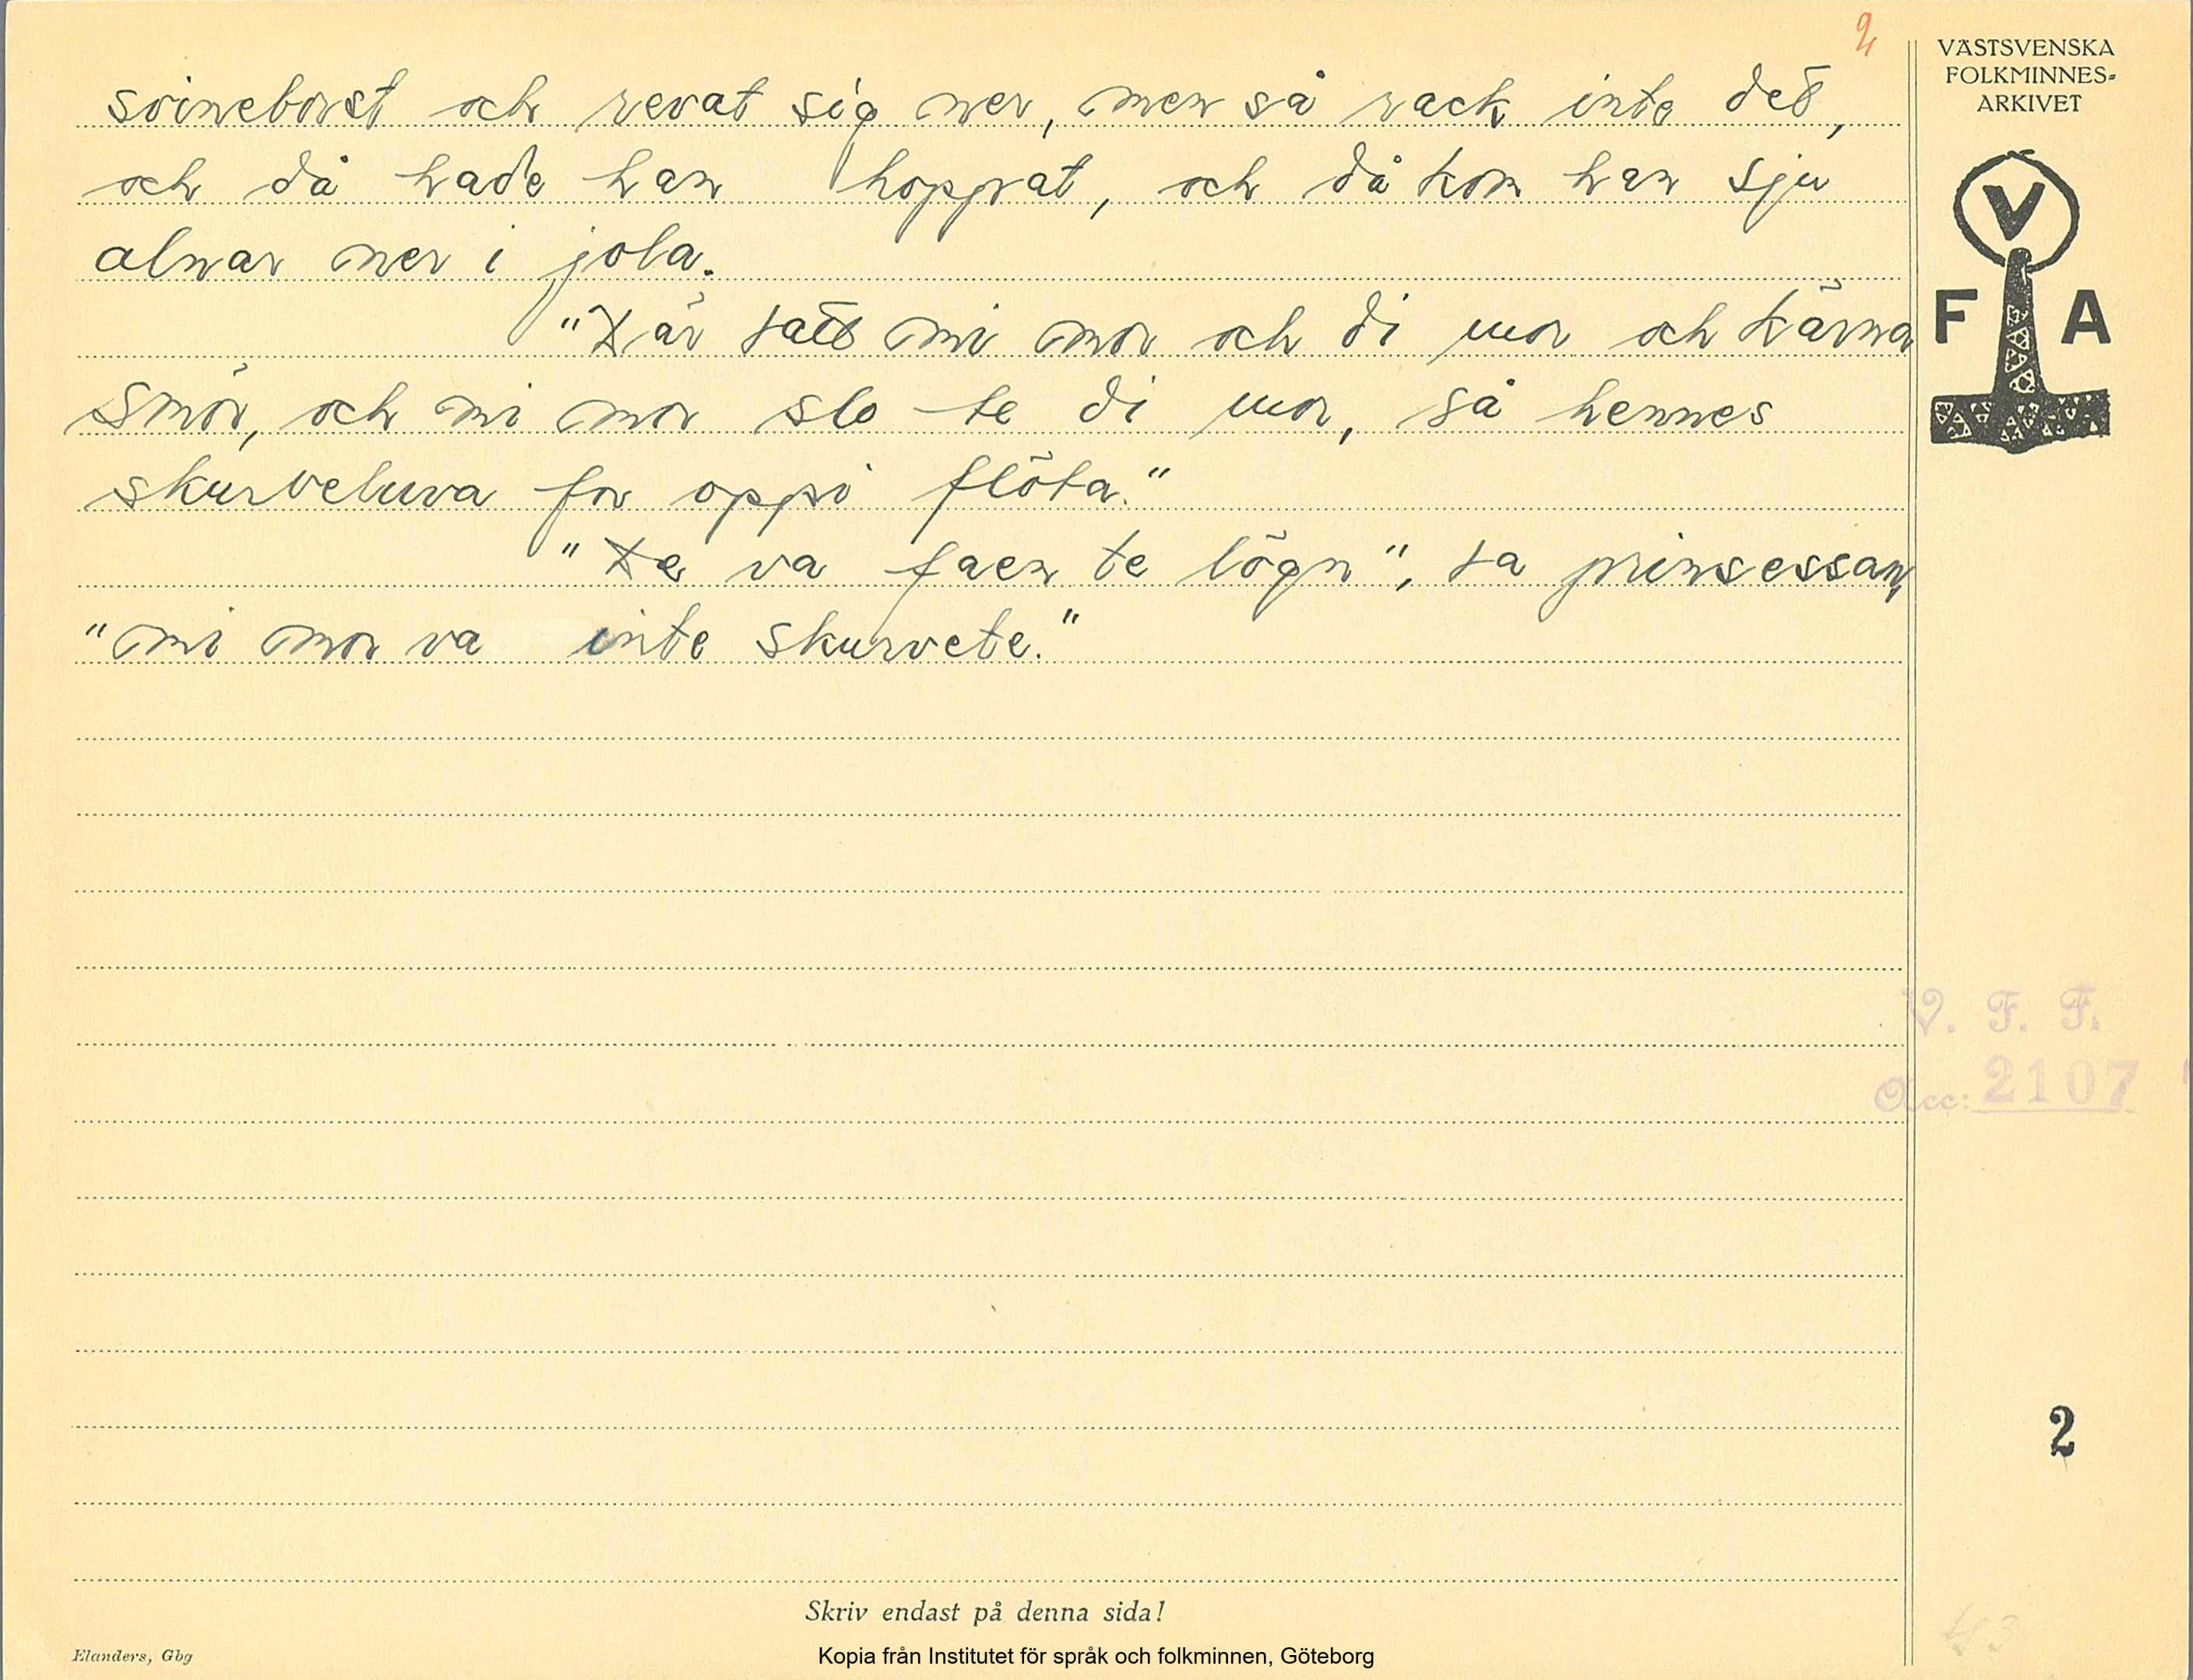 2
svineborst och revat sig ner, men så rack inte det,
och då hade han hopprat, och då kom han sju
alnar ner i jola.
"Där satt mi mor och di mor och kärna
smör, och mi mor slo te di mor, så hennes
skurveluva for oppi flöta."
"De va faen te lögn", sa prinsessan,
"mi mor va inte skurvete."
VÄSTSVENSKA
FOLKMINNES-
ARKIVET
V
F A
V. F. F.
Acc: 2107
2
Skriv endast på denna sida!
Elanders, Gbg
Kopia från Institutet för språk och folkminnen, Göteborg